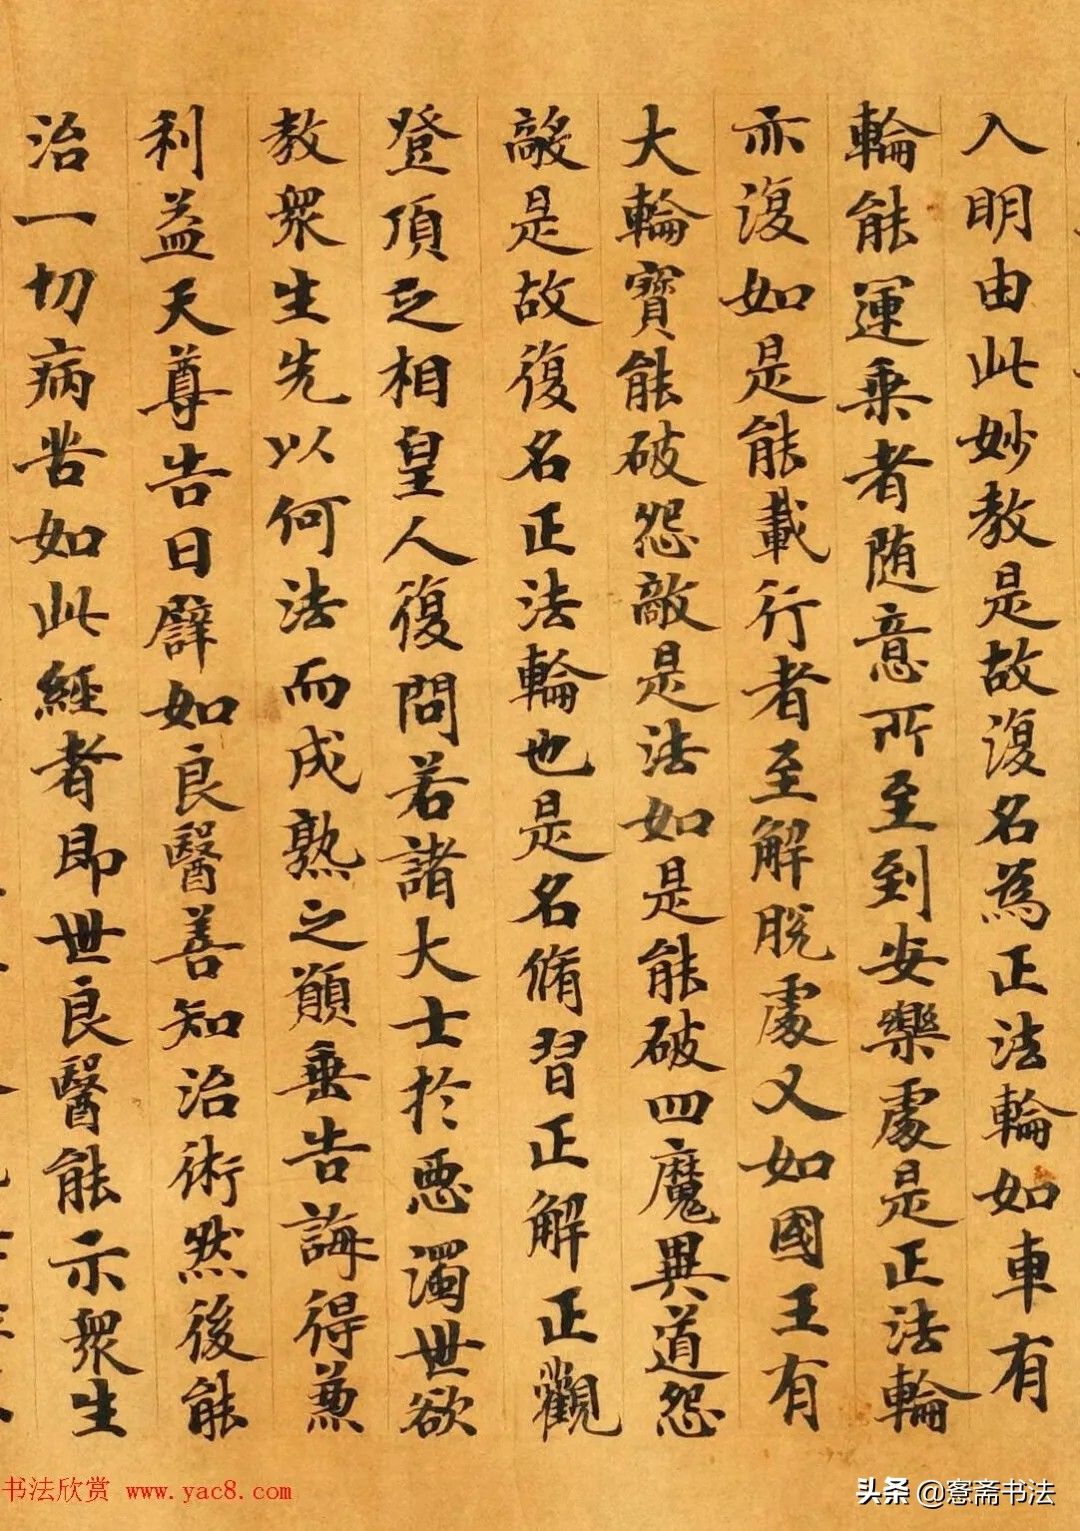 入明由此妙教是故復名為正法輪如車有
輪能運乗者随意所至到安樂處是正法輪
亦復如是能載行者至解脫處又如國王有
大輪寶能破怨敵是法如是能破四魔異道怨
敵是故復名正法輪也是名脩習正解正觀
登頂之相皇人復問若諸大士於惡濁世欲
教衆生先以何法而成熟之願垂告誨得兼
利益天尊告曰譬如良醫善知治術然後能
治一切病苦如此經者即世良醫能示衆生
书法欣赏 www.yac8.com
头条 @愙斋书法